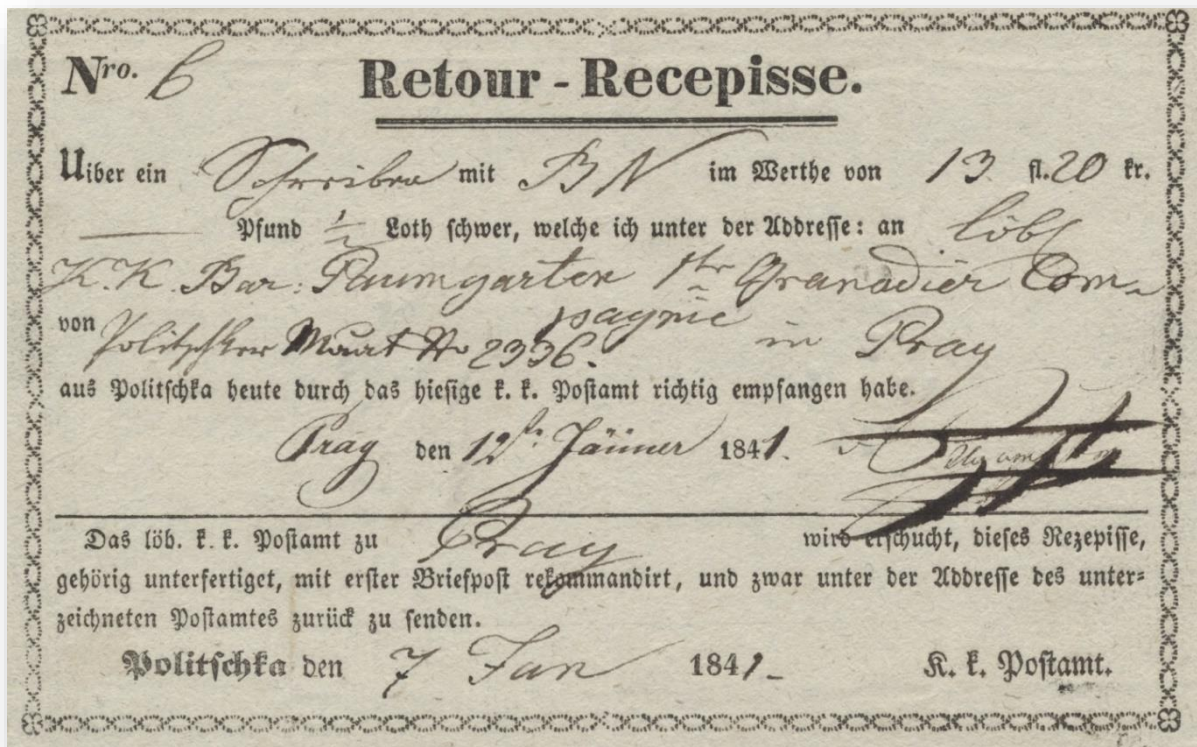 Nro. 6 Retour-Recepisse.
Uiber ein Schreiben mit B N im Werthe von 13 fl. 20 kr.
— Pfund ½ Loth schwer, welche ich unter der Addresse: an löbl
K. K. Bar: Paumgarten 1te Granadier Com-
pagnie
von Politschker No 2336. in Prag
aus Politschka heute durch das hiesige k. k. Postamt richtig empfangen habe.
Prag den 12t. Jänner 1841.
Das löb. k. k. Postamt zu Prag wird erschucht, dieses Rezepisse,
gehörig unterfertiget, mit erster Briefpost rekommandirt, und zwar unter der Addresse des unter=
zeichneten Postamtes zurück zu senden.
Politschka den 7 Jan 1841. K. k. Postamt.